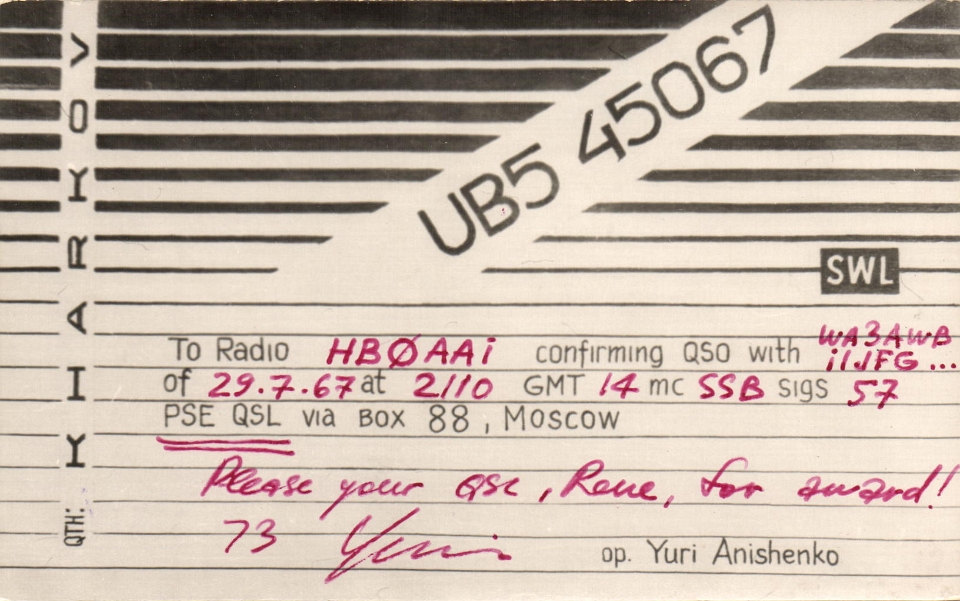 QTH: KHARKOV
UB5 45067
SWL
To Radio HBØAAi confirming QSO with WA3AWB i1JFG...
of 29.7.67 at 2110 GMT 14 mc SSB sigs 57
PSE QSL via Box 88, Moscow
Please your QSL, Rene, for award!
73 Yuri
op. Yuri Anishenko